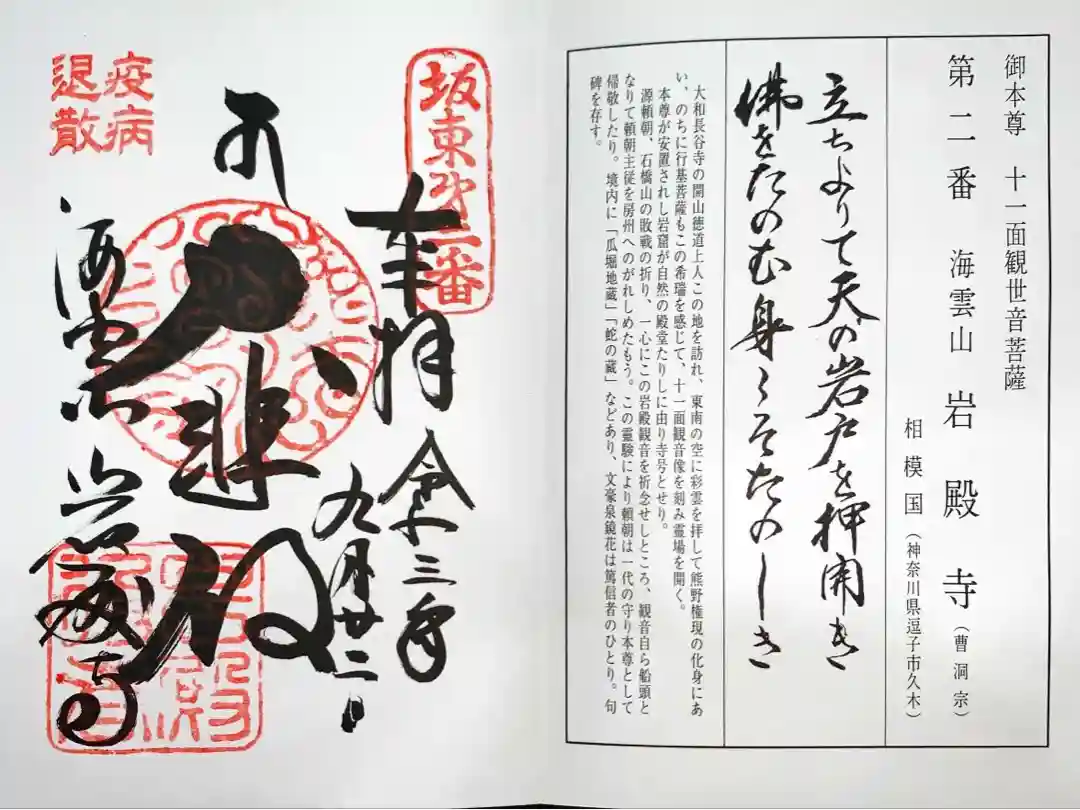 御本尊 十一面観世音菩薩
第二番 海雲山 岩殿寺(曹洞宗)
相模国(神奈川県逗子市久木)
立ちよりて天の岩戸を押開き
佛をたのむ身こそたのしき
大和長谷寺の開山徳道上人この地を訪れ、東南の空に彩雲を拝して熊野権現の化身にあ
い、のちに行基菩薩もこの希瑞を感じて、十一面観音像を刻み霊場を開く。
本尊が安置されし岩窟が自然の殿堂たりしに由り寺号とせり。
源頼朝、石橋山の敗戦の折り、一心にこの岩殿観音を祈念せしところ、観音自ら船頭と
なりて頼朝主従を房州へのがれしめたもう。この霊験により頼朝は一代の守り本尊として
帰敬したり。境内に「瓜堀地蔵」「蛇の蔵」などあり、文豪泉鏡花は篤信者のひとり。句
碑を存す。
坂東第二番
奉拝
令和三年
九月廿二日
大悲殿
疫病
退散
海雲山岩殿寺